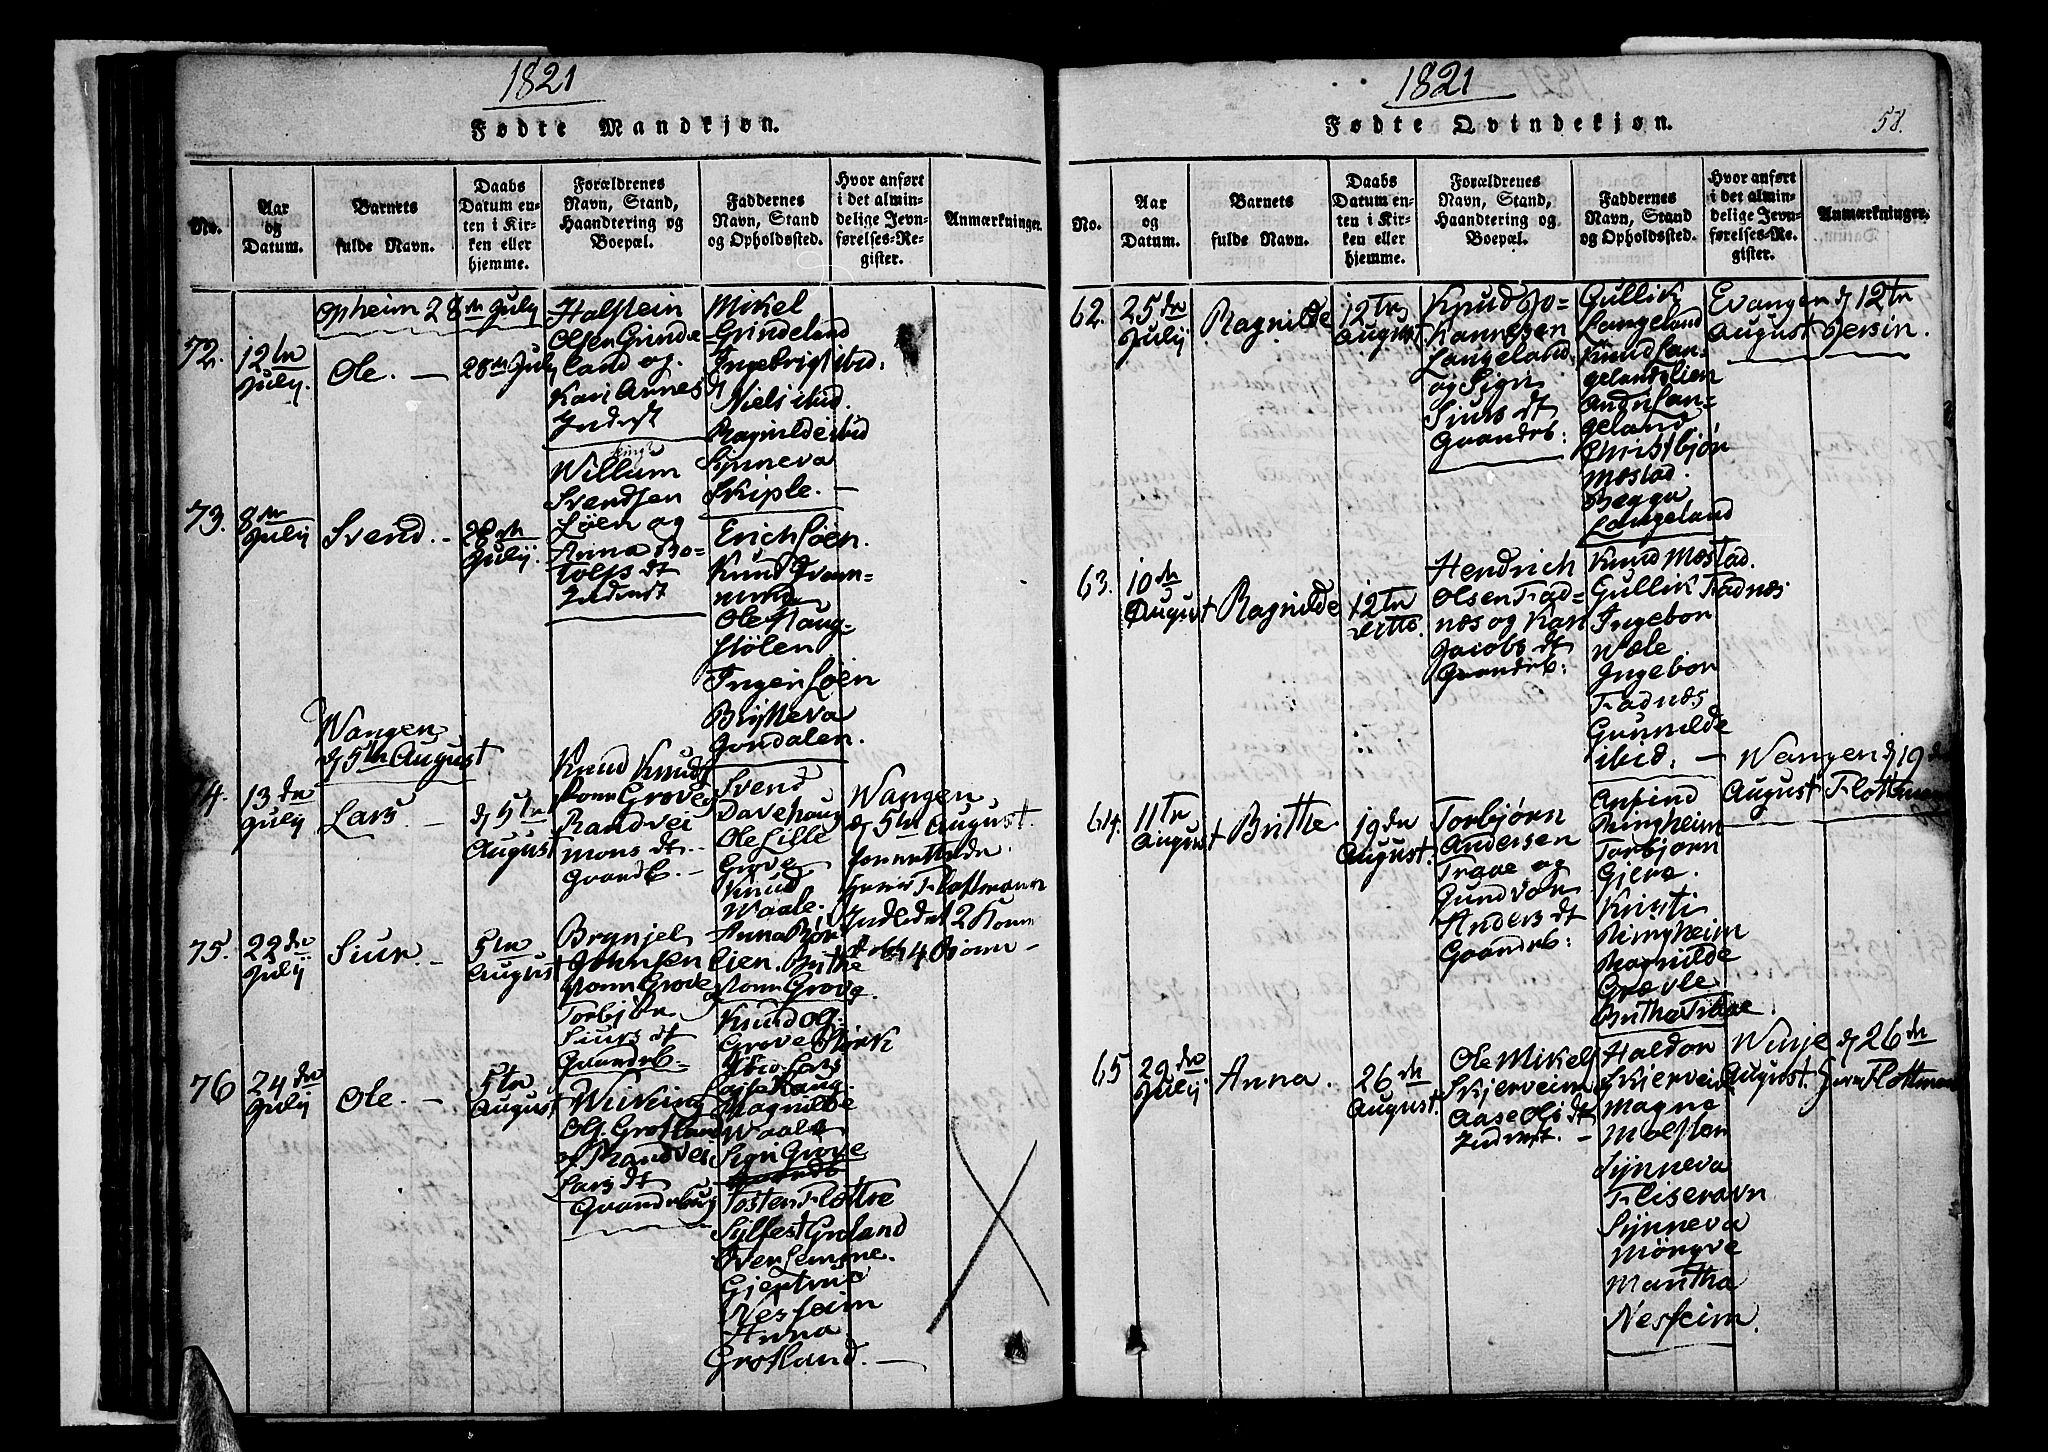 1821
Fødte Mandkjøn.
No.
Aar
og
Datum.
Barnets
fulde Navn.
Daabs
Datum en-
ten i Kir-
ken eller
hjemme.
Forældrenes
Navn, Stand,
Haandtering og
Boepæl.
Faddernes
Navn, Stand
og Opholdssted.
Hvor anført
i det almin-
delige Jevn-
førelses-Re-
gister.
Anmærkninger.
Opheim 28de July
72.
12te
July.
Ole. —
28de July
Halstein
Olsen Grinde
land og
Kari Arnes
Inderst
Mikel
Grindeland
Ingebrigt ibid:
Niels ibid.
Ragnilde ibid
Synneva
Skiple. —
73.
8de
July
Svend. —
28de
July.
Willum
Svendsen
Løen og
Anna Bo-
tolfs dt
Inderst
Erich Løen.
Knud
Ole Haug-
støLen
Inger Løen
Brytteva
Jordalen.
Wangen
d 5te August
74.
13de
July
Lars —
d 5te
August
Knud Knuds
Nonn Grove
Randvei
Mons dt —
Gaardb. —
Svend
Davehaug
Ole Lille
Grove
Knud
Waale.
Anna Bør
lien. Brythe
Nonn Grove.
Wangen
d 5te August.
forrettede
Herr Flottmann
Indledet 2 Kom
døbt 4 Børn —
75.
22de
July
Siur. —
5te
August
Brynjel
Johnsen
Nonn Grove
Torbjør
Siurs dt
Gaardeb —
Knud og
Grove Størk
76
24de
July
Ole. —
5te
August
Wiiking
Ols. Grotland
og Randvei
Lars dt
Gaardebrug
Ragnilde
Waale
Sign Grove
Tosten Flatte
Sylfest Groland
Iver Lemme.
Gjertrud
Nesheim
Anna
Grotland. —
1821
58.
Fødte Qvindekjøn.
No.
Aar
og
Datum.
Barnets
fulde Navn.
Daabs
Datum en-
ten i Kir-
ken eller
hjemme.
Forældrenes
Navn, Stand,
Haandtering og
Boepæl.
Faddernes
Navn, Stand
og Opholdssted.
Hvor anført
i det almin-
delige Jevn-
førelses-Re-
gister.
Anmærkninger.
62.
25de
July
Ragnilde
12te
August
Knud Jo-
hannesen
Langeland
og Sign
Siurs dt
Gaardeb:
Gullik
Langeland
Knud Lan-
gelandslien
Andr Lan-
geland
Christbjør
Møstad.
Begga
Langeland
Evangen d 12te
August Dersin.
63.
10de
August
Ragnilde
12te
ditto.
Hendrich
Olsen Fad-
næs og Kari
Jacobs dt
Gaardeb:
Knud Møstad.
Gullik Fadnæs
Ingebor
Wæle
Ingebor
Fadnæs
Gunnilde
ibid. —
Wangen d 19de
August Flottmann
64.
11te
August
Brithe
19de
August.
Torbjørn
Andersen
Traae og
Gundvor
Anders dt
Gaardeb:
Anfind
Ringheim
Torbjørn
Gjera.
Kristi
Ringheim
Ragnilde
Grævle
Britha Traae.
Winje d 26de
August. Herr Flottmann
65
29de
July
Anna.
26de
August.
Ole Mikels
Skjerveim
Aase Ols dt
Inderst. —
Haldor
Skjerveim
Magne
Mølster
Synneva
Fliseravn
Synneva
Mørqve
Martha
Nesheim.